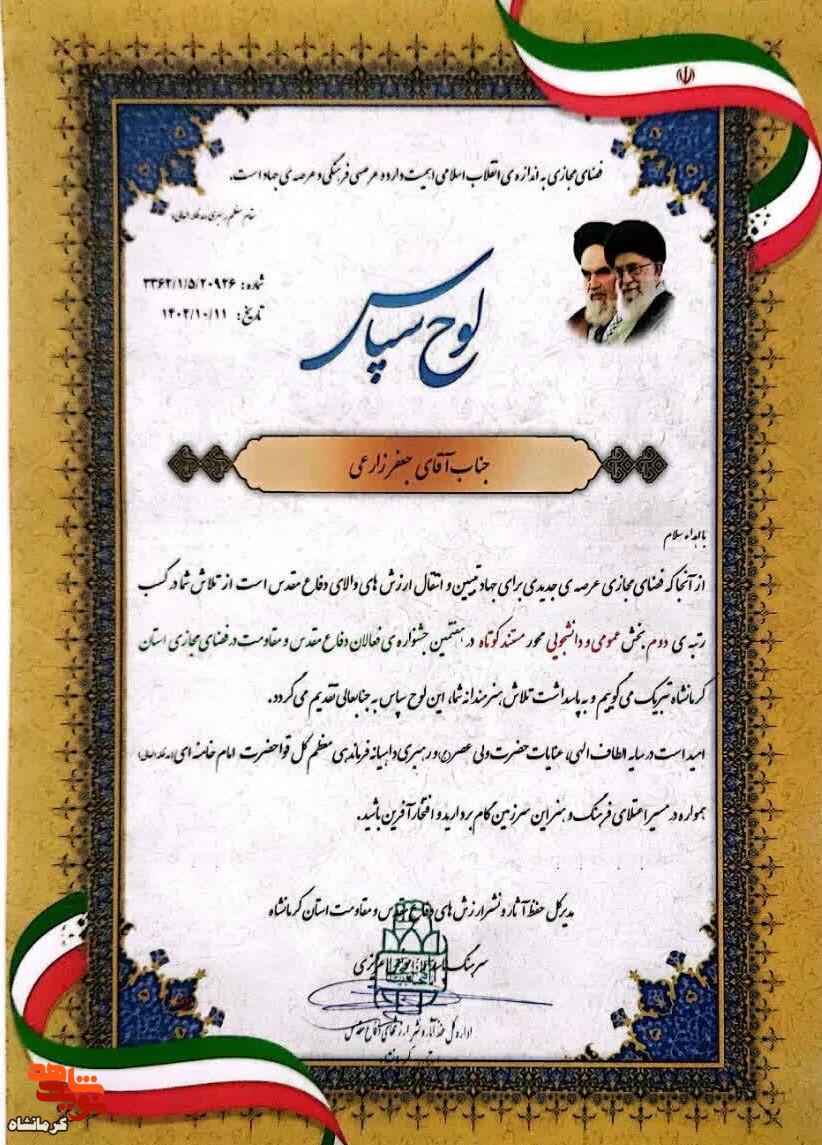 فضای مجازی به اندازه ی انقلاب اسلامی اهمیت دارد و عرصه ی فرهنگی و عرصه ی جهاد است.
مقام معظم رهبری (مدظله العالی)
شماره: ۳۳۶۲/۱/۵/۲۰۹۲۶
تاریخ: ۱۴۰۲/۱۰/۱۱
لوح سپاس
جناب آقای جعفر زارعی
با اهداء سلام
از آنجا که فضای مجازی عرصه ی جدیدی برای جهاد تبیین و انتقال ارزش های والای دفاع مقدس است از تلاش شما در کسب
رتبه ی دوم بخش عمومی و دانشجویی محور مستند کوتاه در هفتمین جشنواره ی فعالان دفاع مقدس و مقاومت در فضای مجازی استان
کرمانشاه تبریک می گوییم و به پاسداشت تلاش هنرمندانه شما، این لوح سپاس به جنابعالی تقدیم می گردد.
امید است در سایه الطاف الهی، عنایات حضرت ولی عصر (عج) و رهبری داهیانه فرماندهی معظم کل قوا حضرت امام خامنه ای (مدظله العالی)
همواره در مسیر اعتلای فرهنگ و هنر این سرزمین گام بردارید و افتخار آفرین باشید.
مدیرکل حفظ آثار و نشر ارزش های دفاع مقدس و مقاومت استان کرمانشاه
سرهنگ
اداره کل حفظ آثار و نشر ارزشهای دفاع مقدس
نوید شاهد
کرمانشاه